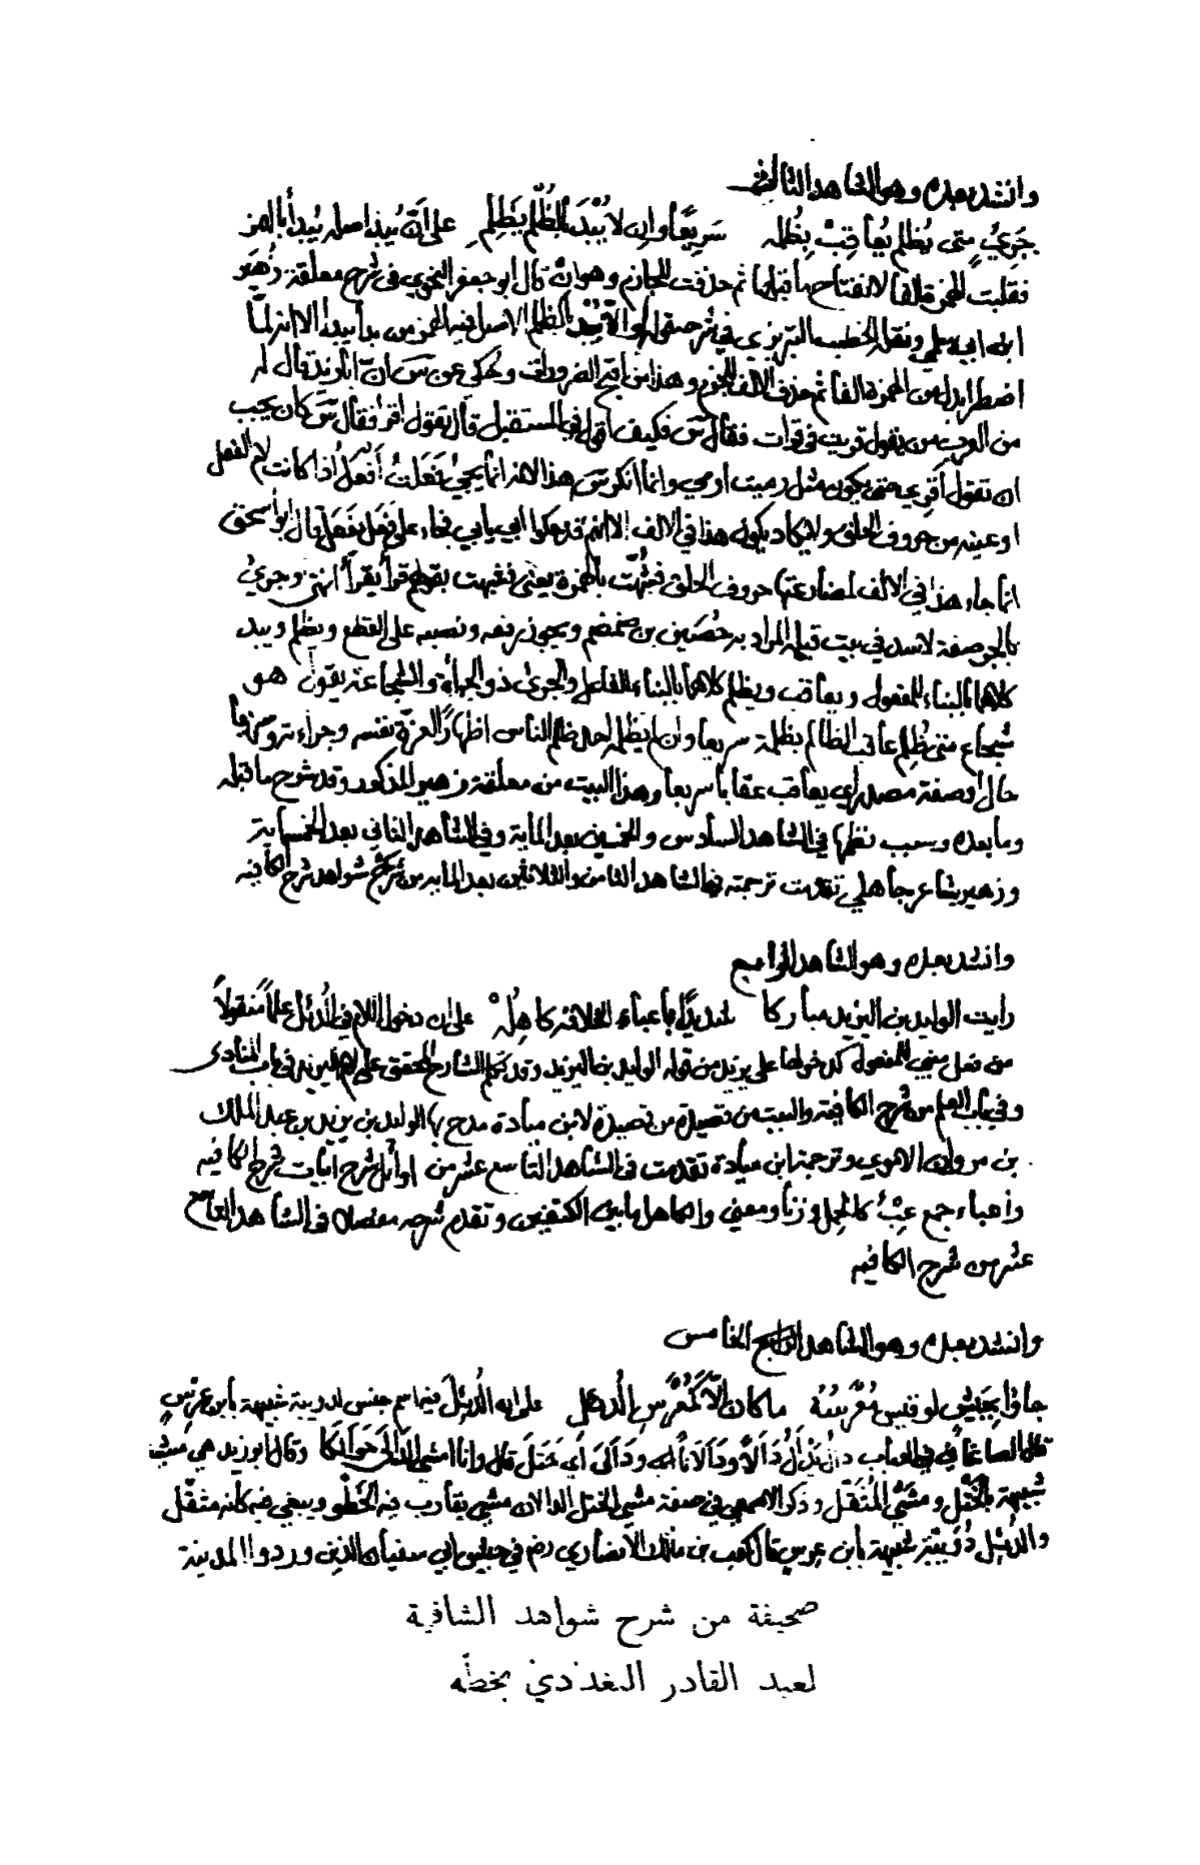 وانشد بعده وهو الشاهد الثالث
جَرِيٍ متى يُظلم يُعاقِبْ بِظُلمه سَرِيعًا وان لا يُبْدَ بالظُلْم يَظلِمِ على اَنّ يُبدَ اصله يُبدأ بالهمز
فقلبت الهمزة الفا لانفتاح ما قبلها ثم حذفت للجازم وهو ان قال ابو جعفر النحوي في شرح معلقة زُهَير
ابن ابي سلمى ونقله الخطيب التبريزي في شرحه قوله والّا يُبْدَ بالظلم الاصل فيه الهمز من بدأ يبدأ الا انه لمّا
اضطر ابدل من الهمزة الفا ثم حذف الالف للجزم وهذا من اقبح الضرورات وحُكي عن سَ ان ابا زيد قال له
من العرب من يقول قريت في قرات فقال سَ فكيف اقول في المستقبل قال تقول اقرا فقال سَ كان يجب
ان تقول اَقرِي حتى يكون مثل رميت ارمي وانما انكر سَ هذا لانه انما يجيُ فَعَلتُ اَفعَلُ اذا كانت لام الفعل
او عينه من حروف الحلق ولا يكاد يكون هذا في الالف الا انهم قد حكوا ابي يابي فجاء على فَعَلَ يَفعَلُ قال ابو اسحق
انما جاء هذا في الالف لمضارعتها حروف الحلق فشُبّهت بالهمزة يعنى فشبهت بقولهم قرأ يقرأ انتهى وجريٍ
بالجر صفة لاسد في بيت قبله المراد به حُصَين بن ضمضم ويجوز رفعه ونصبه على القطع ويظلم ويبد
كلاهما بالبناء للمفعول ويعاقب ويظلم كلاهما بالبناء للفاعل والجرئ ذو الجراءة والشجاعة يقول هو
شجاع متى ظُلِم عاقب الظالم بظلمه سريعا وان لم يظلمه احد ظلم الناس اظهارًا لعزّة نفسه وجراءته وسريعا
حال او صفة مصدر اي يعاقب عقابا سريعا وهذا البيت من معلقة زهير المذكور وقد شرح ما قبله
وما بعده وسبب نظمها في الشاهد السادس والخمسين بعد الماية وفي الشاهد الثاني بعد الخمسماية
وزهير شاعر جاهلي تقدمت ترجمته في الشاهد الثامن والثلاثين بعد المايه من شرح شواهد شرح الكافيه
وانشد بعده وهو الشاهد الرابع
رايت الوليد بن اليزيد مباركا شديدًا بأعباء الخلافة كاهِلُهْ على ان دخول اللام في الدُئل علمًا منقولًا
من فعل مبني للمفعول كدخولها على يزيد من قوله الوليد بن اليزيد وقد تكلم الشارح المحقق على لام اليزيد في باب المنادى
وفي باب العلم من شرح الكافية والبيت من قصيدة من قصيدة لابن ميادة مدح بها الوليد بن يزيد بن عبد الملك
بن مروان الاموي وترجمة ابن ميادة تقدمت في الشاهد التاسع عشر من اوائل شرح ابيات شرح الكافيه
واعباء جمع عِبْءُ كالحمل وزنا ومعنى والكاهل ما بين الكتفين وتقدم شرحه مفصلا في الشاهد التاسع
عشر من شرح الكافيه
وانشد بعده وهو الشاهد الرابع الخامس
جاؤا بجَيْشٍ لو قيس مُعْرَسُهُ ما كان اِلّا كَمُعْرَسِ الدُئِل على ان الدُئِلَ فيه اسم جنس لدويبة شبيهة بابن عِرْسٍ
قال الصاغاني في العباب دأل يَدْأَلُ دَأَلاً ودَأَلانا ودَأَلَى اَي خَتَلَ قال وانا امشي الدَأَلَى حَوَالَكا وقال ابو زيد هي مشية
شبيهة بالخَتْل ومَشْيُ المُثْقَل وذكر الاصمعي في صفة مشي الخيل الدالان مشي يقارب فيه الخَطْو ويبغي فيه كأنه مثقَل
والدُئِل دُوَيْبّة شبيهة بابن عِرسٍ قال كعب بن مالك الانصاري رضه في جيش ابي سفيان الذين وردوا المدينة
صحيفة من شرح شواهد الشافية
لعبد القادر البغدذي بخطّه